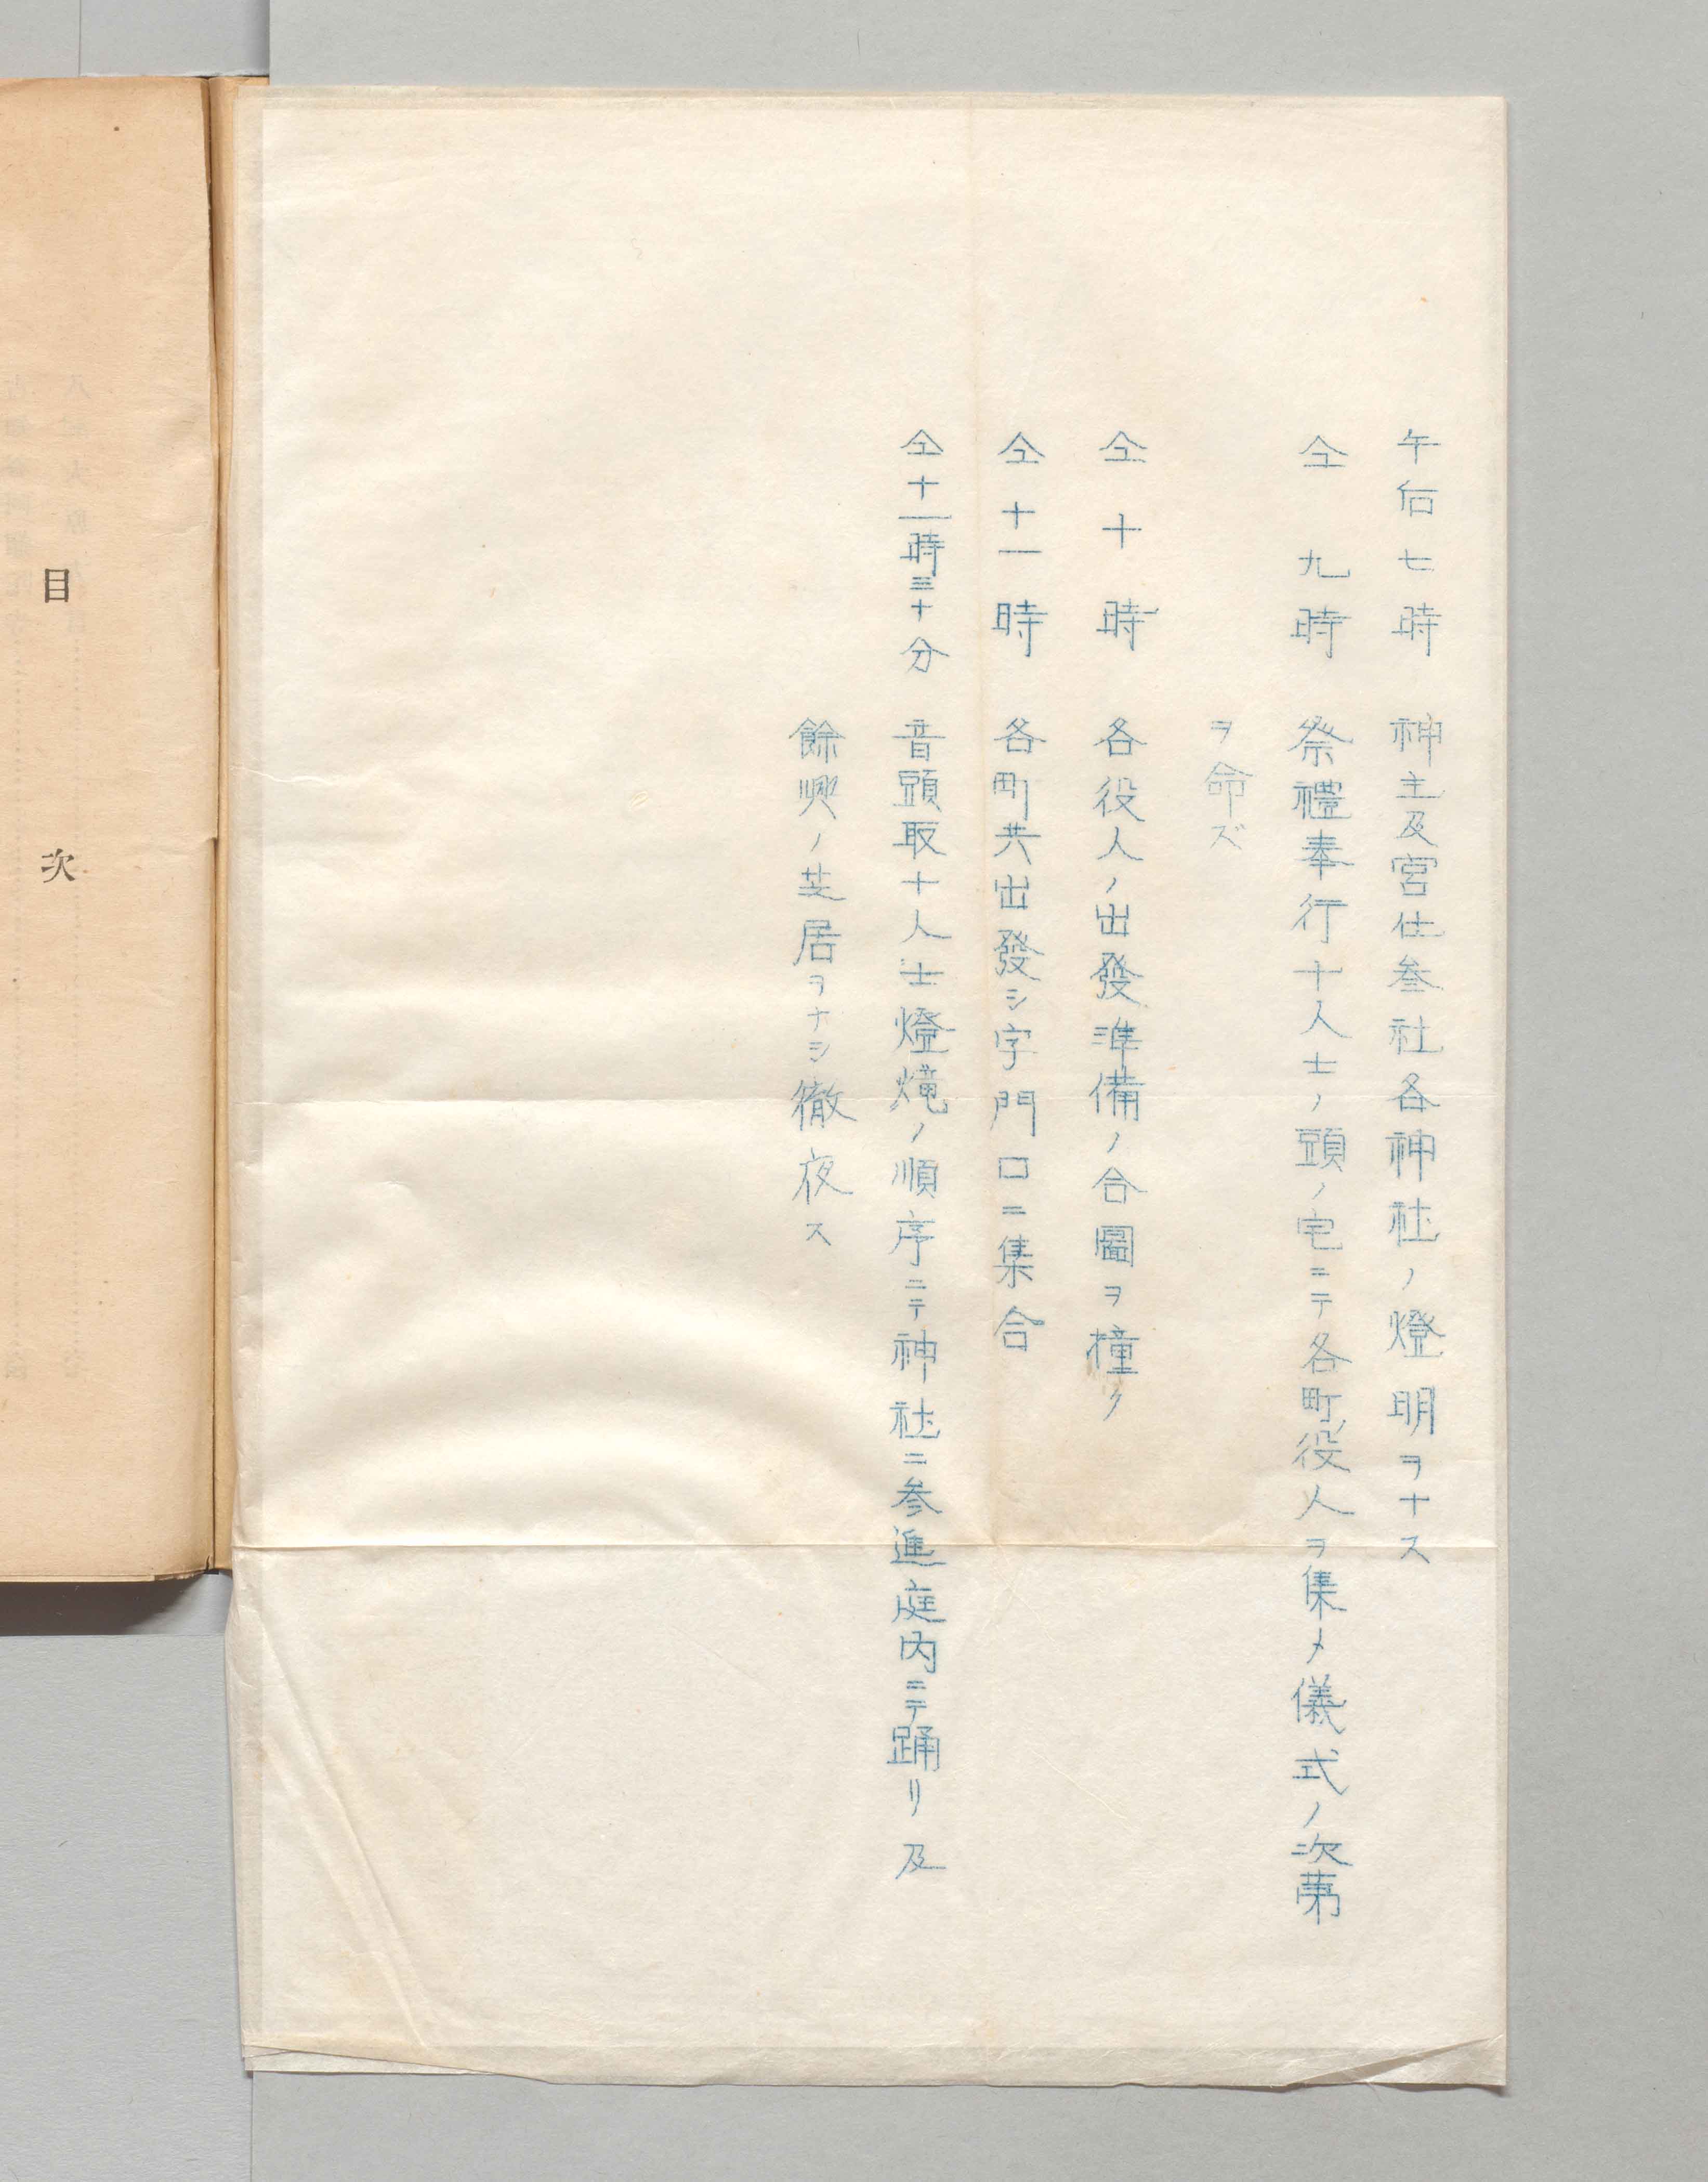 午后七時 神主及宮仕叁社各神社ノ燈明ヲナス
仝九時 祭禮奉行十人士ノ頭ノ宅ニテ各町ノ役人ヲ集メ儀式ノ次第
ヲ命ズ
仝十時 各役人ノ出發準備ノ合圖ヲ撞ク
仝十一時 各町共出發シ字門口ニ集合
仝十一時三十分 音頭取十人士燈爖ノ順序ニテ神社ニ参進庭内ニテ踊リ及
餘興ノ芝居ヲナシ徹夜ス
目次